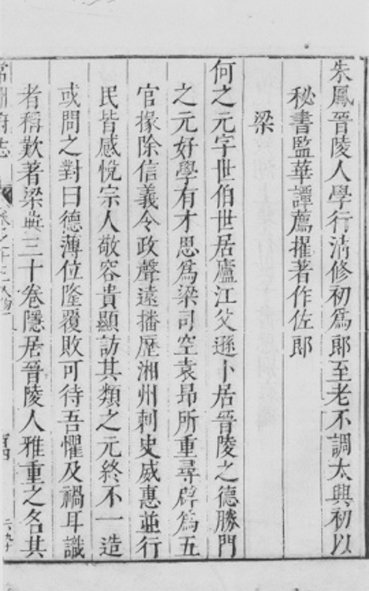 朱鳳晉陵人學行淸修初爲郎至老不調太興初以
秘書監華譚薦擢著作佐郎
梁
何之元字世伯世居廬江父遜卜居晉陵之德勝門
之元好學有才思爲梁司空袁昂所重尋辟爲五
官掾除信義令政聲遠播歷湘州刺史威惠並行
民皆感悅宗人敬容貴顯訪其類之元終不一造
或問之對曰德薄位隆覆敗可待吾懼及禍耳識
者稱歎著梁典三十卷隱居晉陵人雅重之名其
常州府志